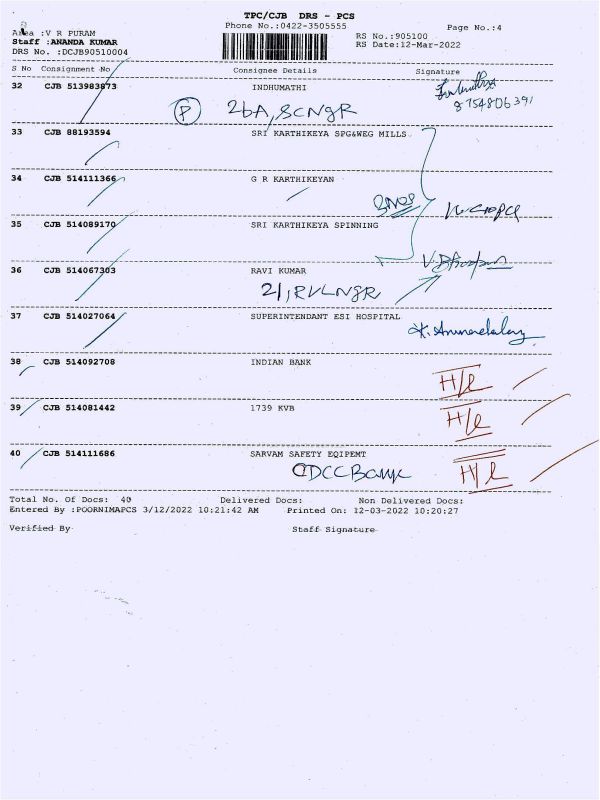 TPC/CJB DRS - PCS
Phone No.:0422-3505555
Page No.:4
Area :V R PURAM
RS No.:905100
Staff :ANANDA KUMAR
RS Date:12-Mar-2022
DRS No. :DCJB90510004
S No Consignment No Consignee Details Signature
32 CJB 513983873 INDHUMATHI
8754806391
P 26A, SCNGR
33 CJB 88193594 SRI KARTHIKEYA SPG&WEG MILLS
34 CJB 514111366 G R KARTHIKEYAN
35 CJB 514089170 SRI KARTHIKEYA SPINNING
36 CJB 514067303 RAVI KUMAR
21, RVLNGR
37 CJB 514027064 SUPERINTENDANT ESI HOSPITAL
38 CJB 514092708 INDIAN BANK
H/L
39 CJB 514081442 1739 KVB
H/L
40 CJB 514111686 SARVAM SAFETY EQIPEMT
CDCCBank H/L
Total No. Of Docs: 40 Delivered Docs: Non Delivered Docs:
Entered By :POORNIMAPCS 3/12/2022 10:21:42 AM Printed On: 12-03-2022 10:20:27
Verified By Staff Signature